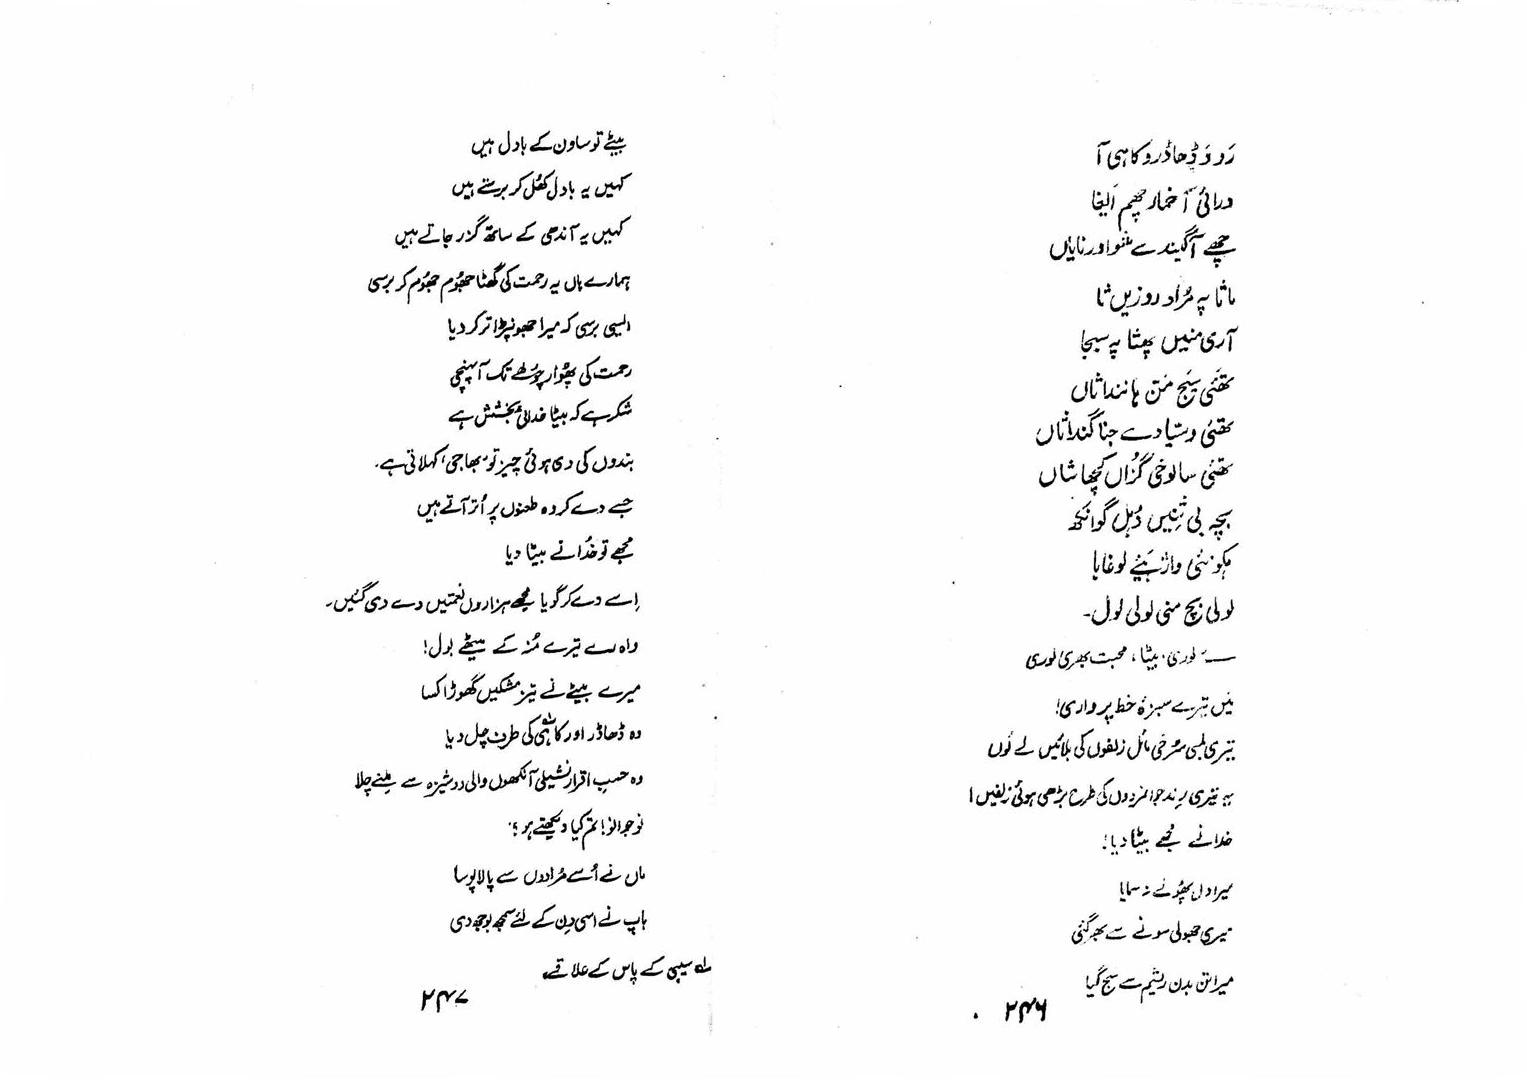 رَو دَ ڈھاڈر و کاہی آ
درائی آ خمار چھم اَلیغا
چھے آگیند سے ملنو اور نایاں
ماثا پہ مُراد روزیں ثا
آری منیں پھثا پہ سبجا
تھئی سَج مَن ہانندا ثاں
تھئی وستیا دے جنا گندا ثاں
تھئی سالوخی گزّاں کچھا شاں
بچہ بی تنیں دُہل گوانکھ
لولی بچ منی لولی لول۔
— "لوری، بیٹا، محبت بھری لوری
میں تیرے سبزۂ خط پر واری!
تیری لمبی سُرخی مائل زلفوں کی بلائیں لے لُوں
یہ تیری رِند جوانمردوں کی طرح بڑھی ہوئی زلفیں!
خدا نے مجھے بیٹا دیا!
میرا دل پھُولے نہ سمایا
میری جھولی سونے سے بھر گئی
میرا تن بدن ریشم سے سج گیا
۲۴۶
بیٹے تو ساون کے بادل ہیں
کہیں یہ بادل کھُل کر برستے ہیں
کہیں یہ آندھی کے ساتھ گزر جاتے ہیں
ہمارے ہاں یہ رحمت کی گھٹا جھُوم جھُوم کر برسی
ایسی برسی کہ میرا جھونپڑا تر کر دیا
رحمت کی پھُوار چولھے تک آ پہنچی
شکر ہے کہ بیٹا خدائی بخشش ہے
بندوں کی دی ہوئی چیز تو 'بھاجی' کہلاتی ہے۔
جسے دے کر وہ طعنوں پر اُتر آتے ہیں
مجھے تو خُدا نے بیٹا دیا
اِسے دے کر گویا مجھے ہزاروں نعمتیں دے دی گئیں۔
واہ رے تیرے مُنہ کے میٹھے بول!
میرے بیٹے نے تیز مشکیں گھوڑا کسا
وہ ڈھاڈر اور کاہی؎۱ کی طرف چل دیا
وہ حسبِ اقرار نشیلی آنکھوں والی دوشیزہ سے مِلنے چلا
نوجوانو! تم کیا دیکھتے ہو؟
ماں نے اُسے مُرادوں سے پالا پوسا
باپ نے اسی دِن کے لئے سمجھ بوجھ دی
؎۱ سیبی کے پاس کے علاقے۔
۲۴۷